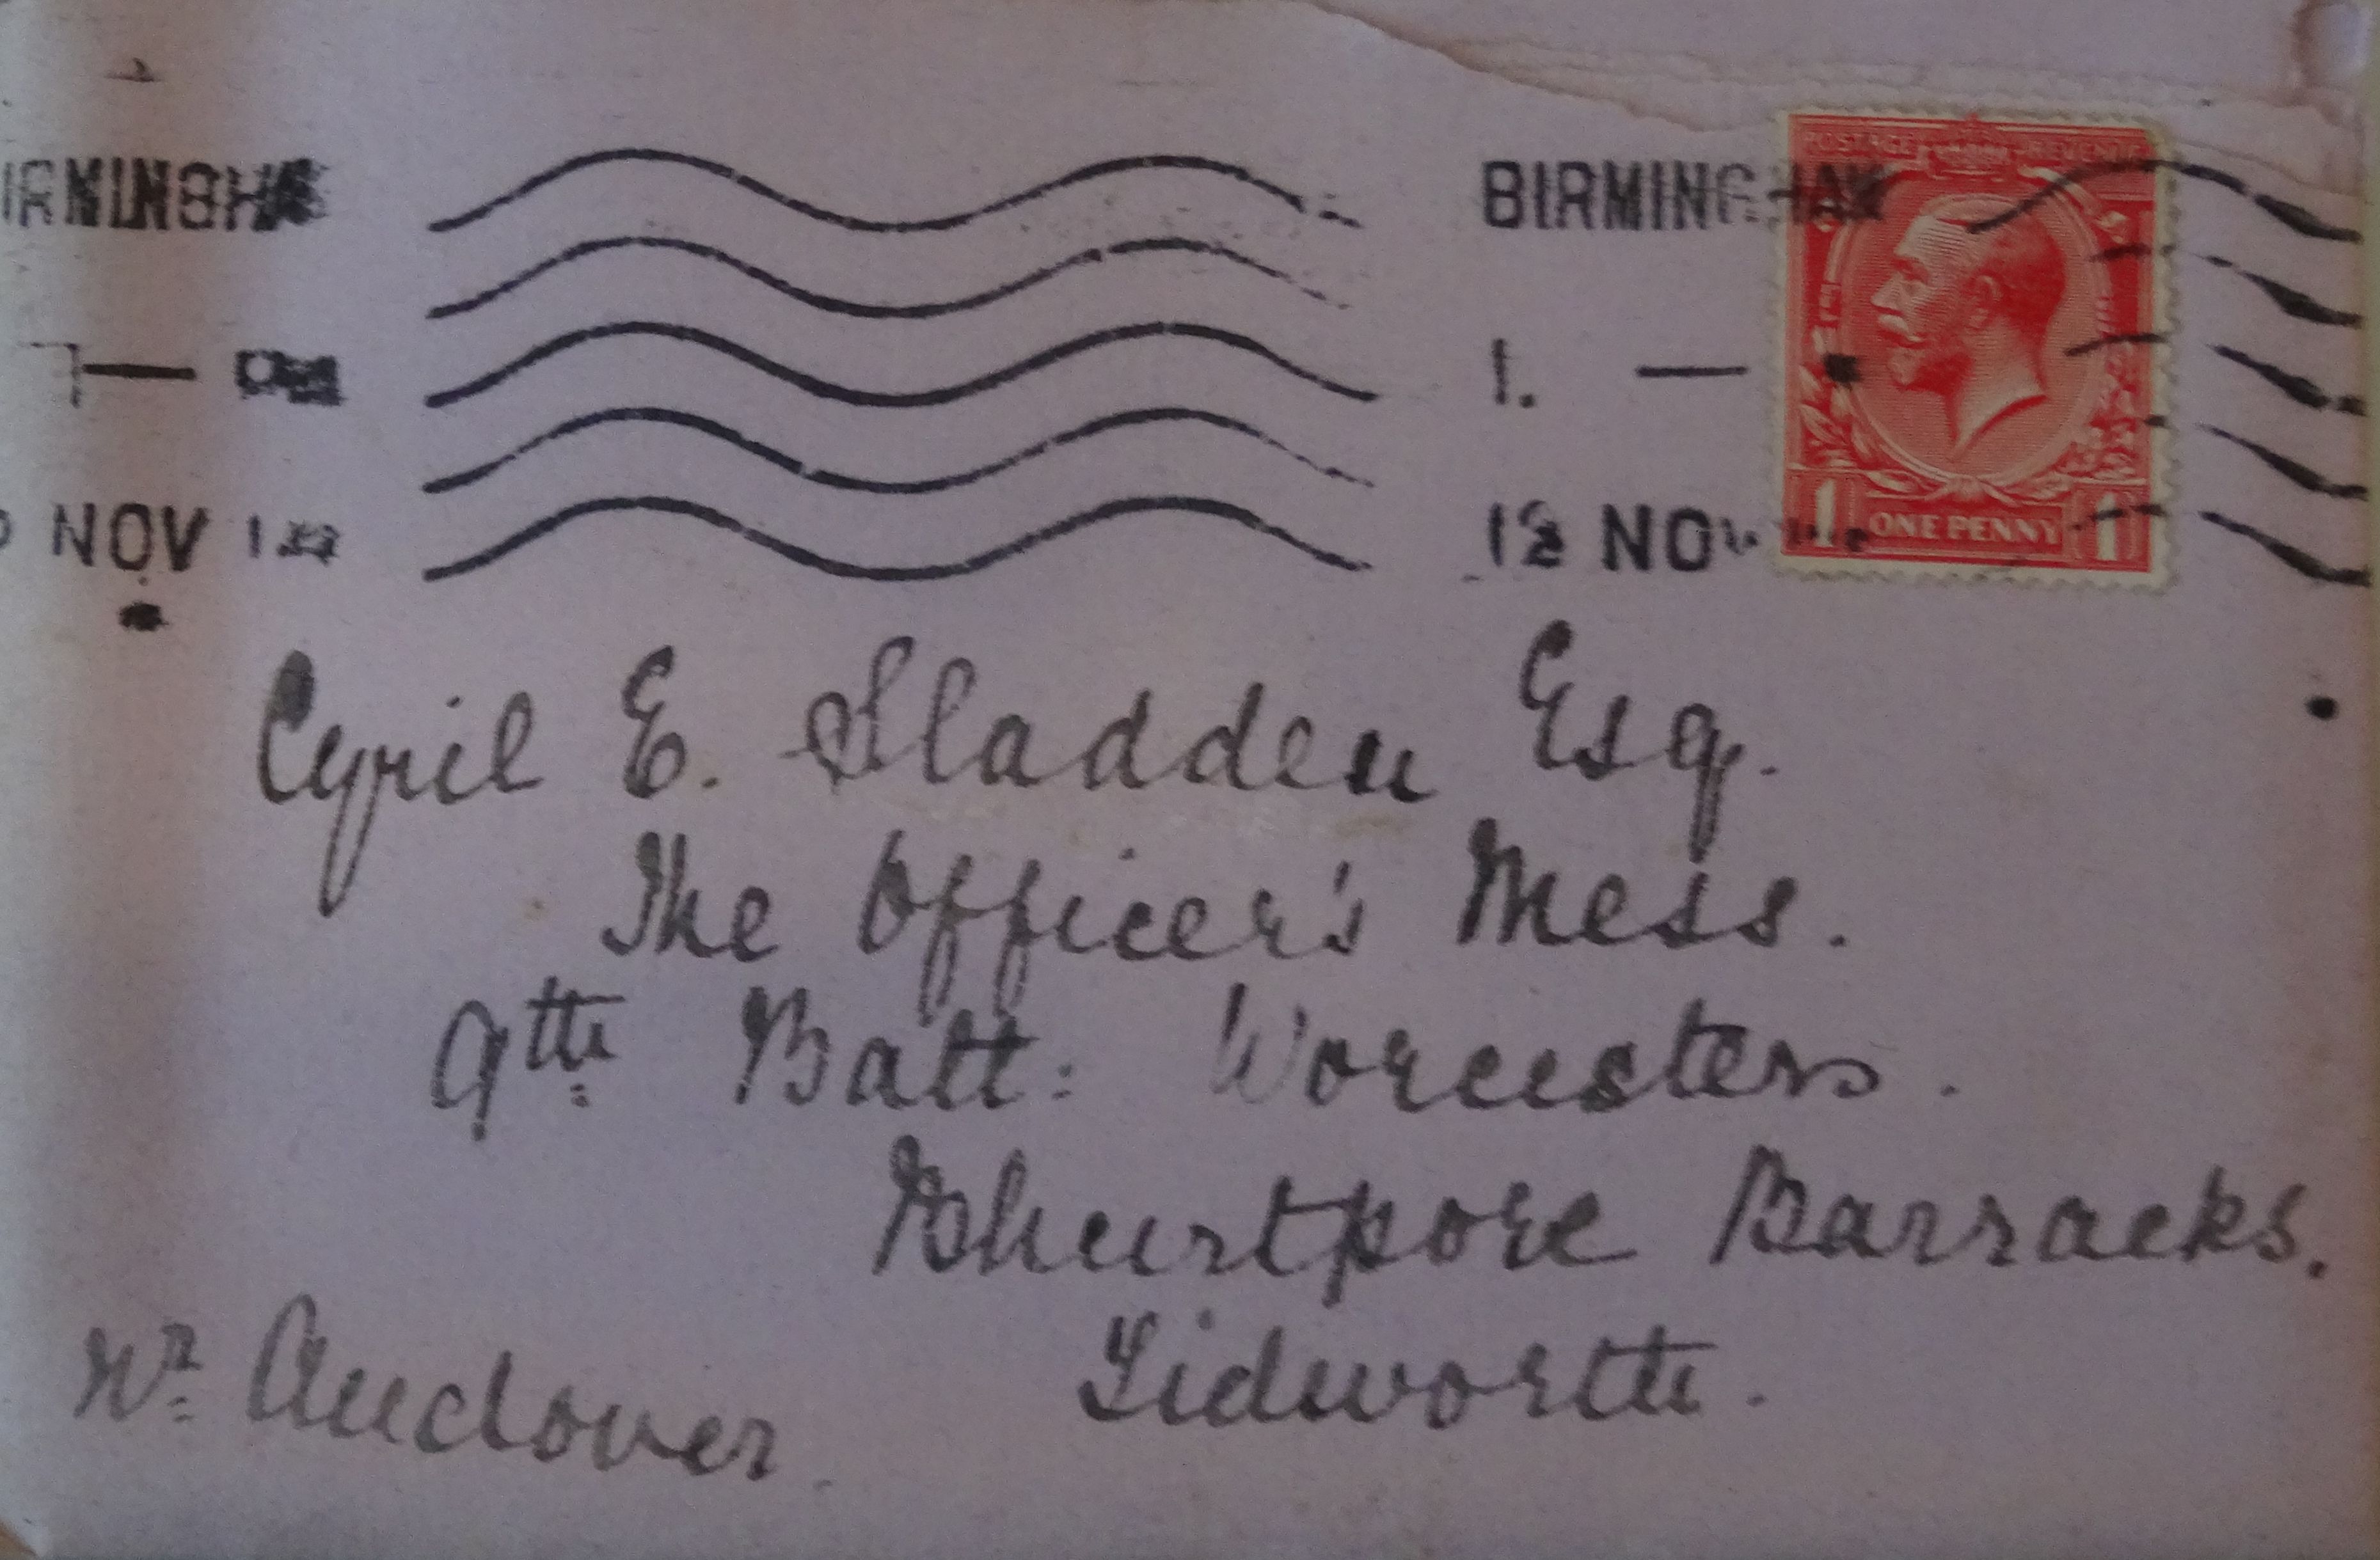 BIRMINGHAM
1. —
12 NOV
NOV
POSTAGE REVENUE
1 ONE PENNY 1
Cyril E. Sladden Esq.
The Officer's Mess.
9th Batt: Worcesters.
Bhurtpore Barracks.
Tidworth.
Nr Andover.